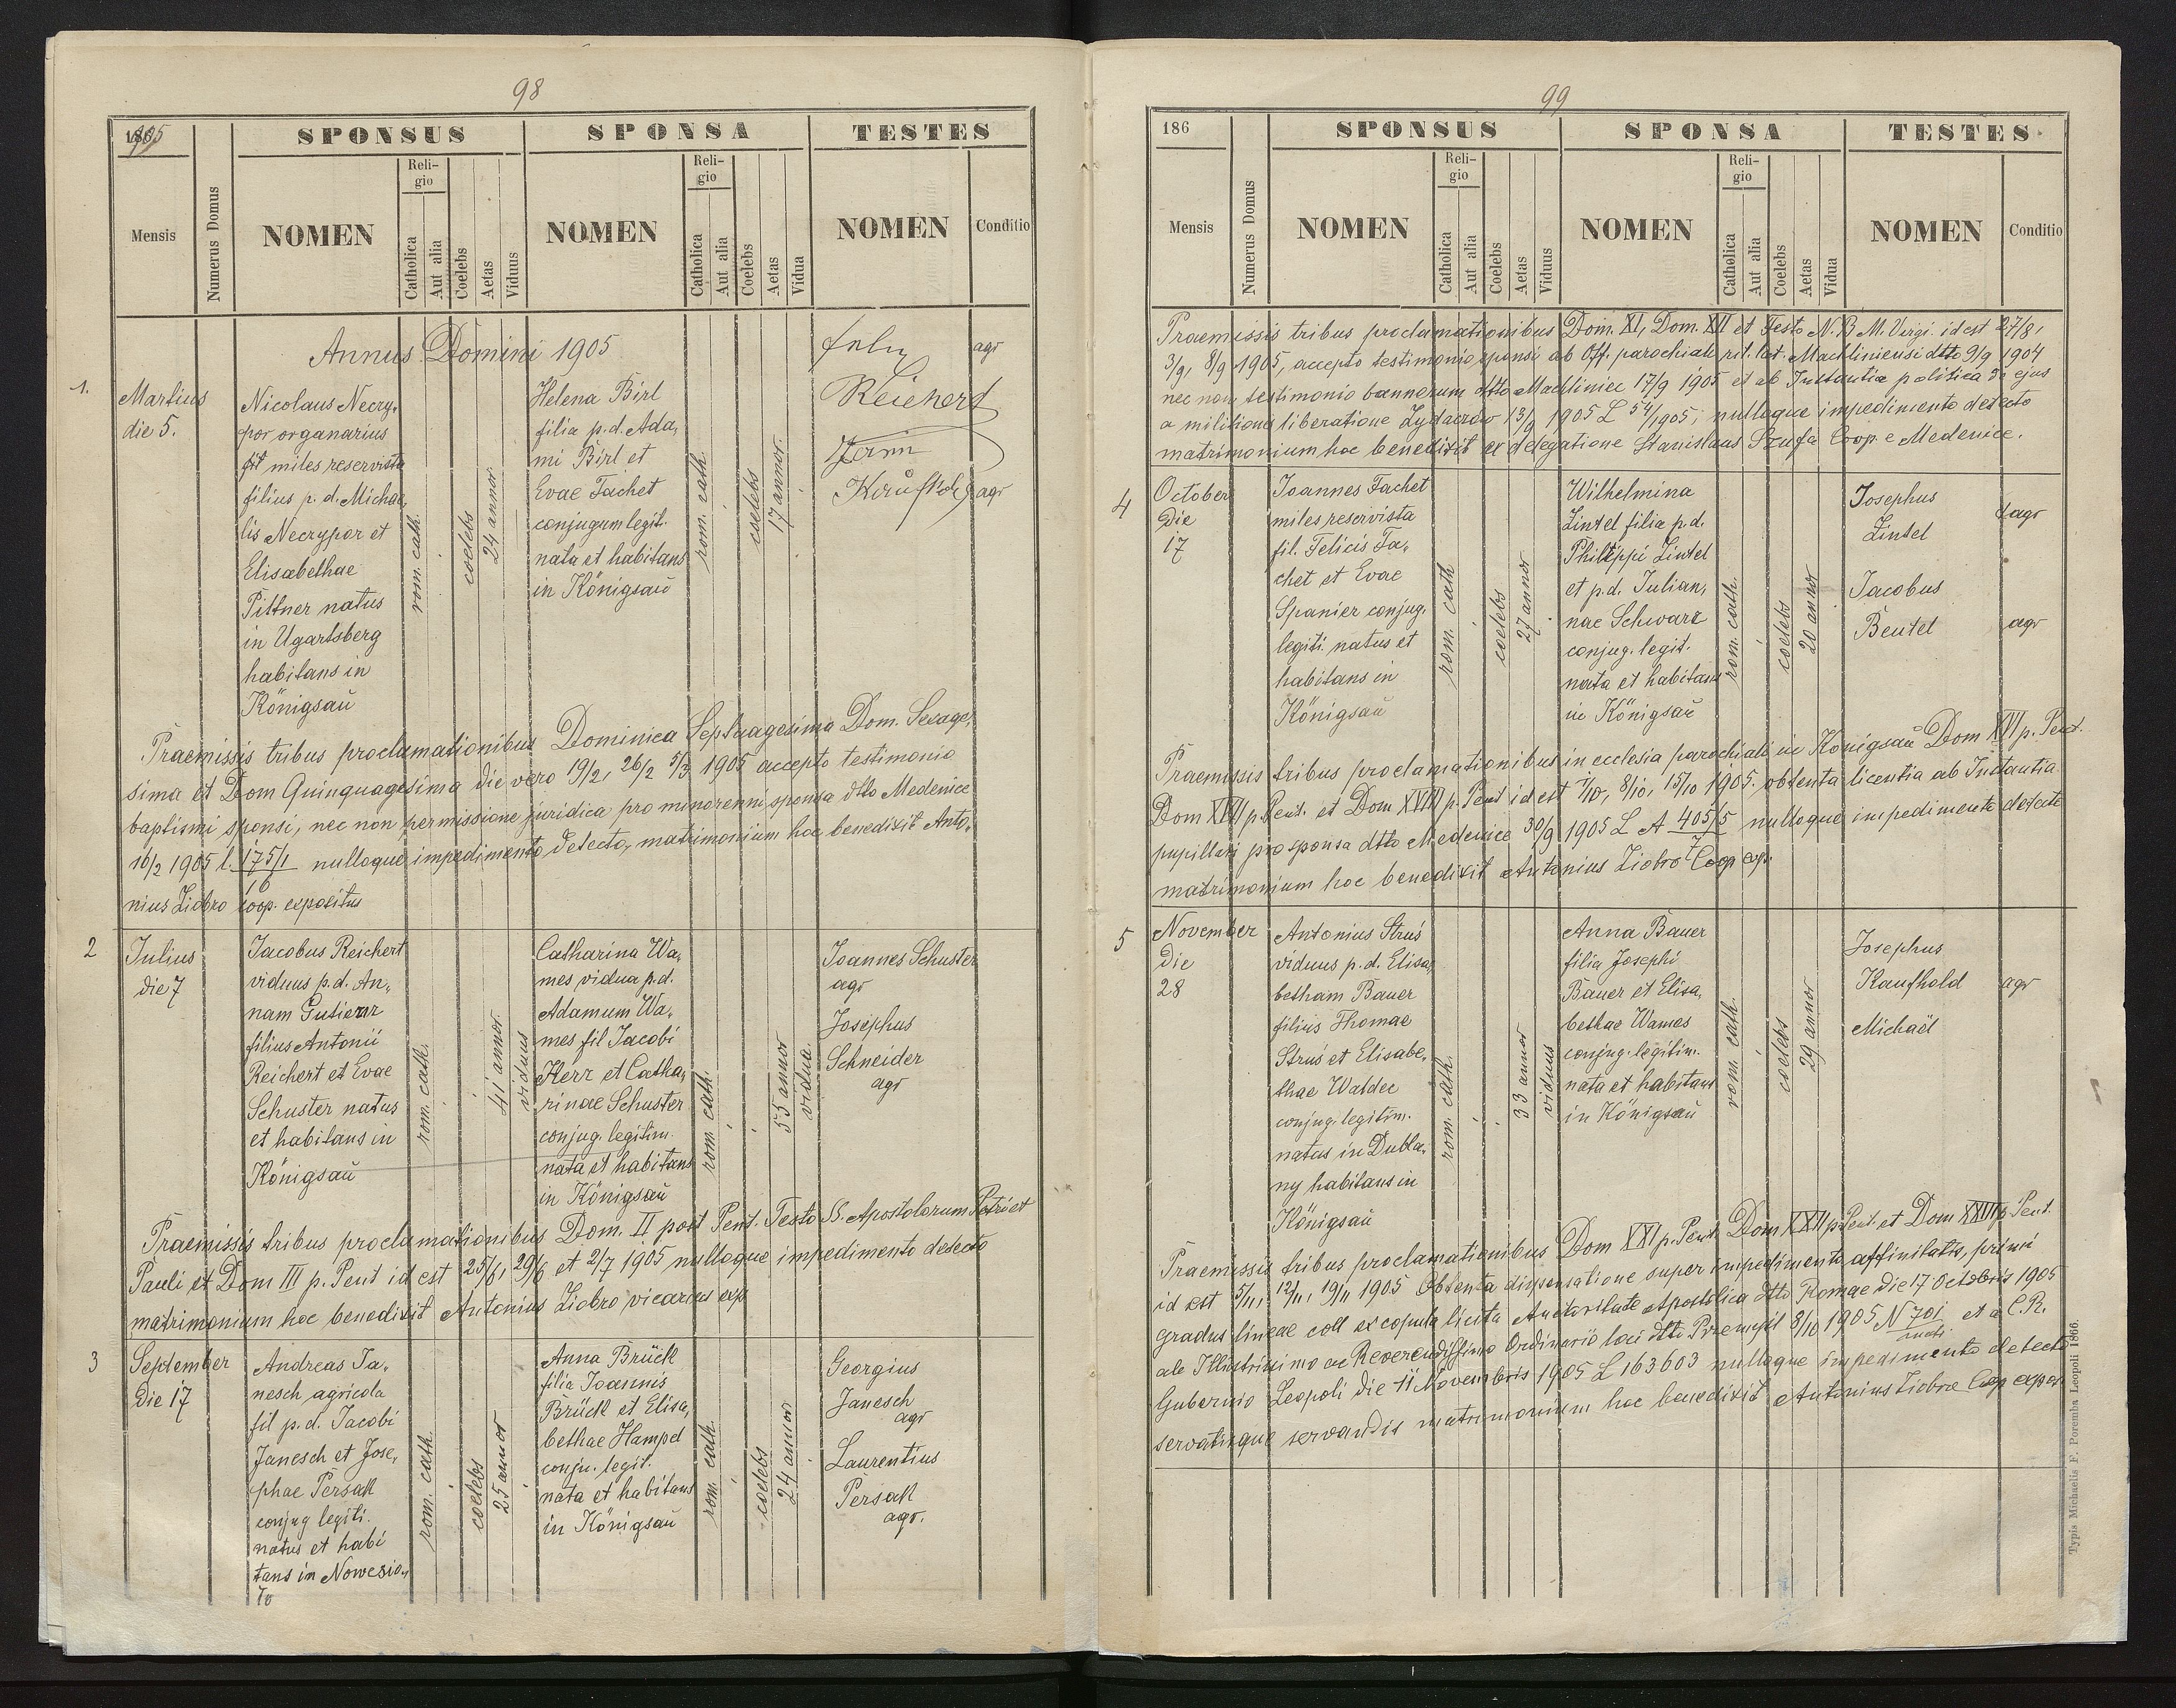 98
1905
SPONSUS
SPONSA
TESTES
Mensis
Numerus Domus
NOMEN
Religio
Catholica
Aut alia
Coelebs
Aetas
Viduus
NOMEN
Religio
Catholica
Aut alia
Coelebs
Aetas
Vidua
NOMEN
Conditio
Annus Domini 1905
1.
Martius
die 5.
Nicolaus Necry„
por organarius
fit miles reservista
filius p. d. Michae„
lis Necrypor et
Elisabethae
Pittner natus
in Ugartsberg
habitans in
Königsaŭ
rom. cath.
coelebs
24 annor
Helena Birl
filia p. d. Ada„
mi Birl et
Evae Tachet
conjugum legit.
nata et habitans
in Königsaŭ
rom. cath.
coelebs
17 annor.
Reichert
agr
agr
Praemissis tribus proclamationibus Dominica Septuagesima Dom. Sexage„
sima et Dom Quinquagesima die vero 19/2, 26/2 5/3 1905 accepto testimonio
baptismi sponsi, nec non permissione juridica pro minorenni sponsa dtto Medenice
16/2 1905 l. 175/1 nulloque impedimento detecto, matrimonium hoc benedixit Anto„
16
nius Ziobro coop. expositus
2
Julius
die 7
Jacobus Reichert
viduus p. d. An„
nam Gutierr
filius Antonii
Reichert et Evae
Schuster natus
et habitans in
Königsaŭ
rom. cath.
41 annor.
viduus
Catharina Wa„
mes vidua p.d.
Adamum Wa„
mes fil Jacobi
Kerr et Catha„
rinae Schuster
conjug. legitim.
nata et habitans
in Königsaŭ
rom. cath.
55 annor
vidua.
Joannes Schuster
agr
Josephus
Schneider
agr
Praemissis tribus proclamationibus Dom. II post Pent. Festo SS. Apostolorum Petri et
Pauli et Dom III p. Pent id est 25/6, 29/6 et 2/7 1905 nulloque impedimento detecto
matrimonium hoc benedixit Antonius Ziobro vicarius exp
3
September
Die 17
Andreas Ja„
nesch agricola
fil p. d. Jacobi
Janesch et Jose„
phae Persak
conjug legiti.
natus et habi
tans in Nowesio„
ło
rom. cath.
coelebs
25 annor
Anna Brückl
filia Joannis
Brückl et Elisa„
bethae Hampel
conju. legit.
nata et habitans
in Königsaŭ
rom. cath.
coelebs
24 annor
Georgius
Janesch
agr
Laurentius
Persak
agr.
99
186
SPONSUS
SPONSA
TESTES
Mensis
Numerus Domus
NOMEN
Religio
Catholica
Aut alia
Coelebs
Aetas
Viduus
NOMEN
Religio
Catholica
Aut alia
Coelebs
Aetas
Vidua
NOMEN
Conditio
Praemissis tribus proclamationibus Dom. XI, Dom. XII et Festo N. B M. Virgi. id est 27/8,
3/9, 8/9 1905, accepto testimonio sponsi ab Off. parochiali rit. lat. Machliniensi dtto 9/9 1904
nec non testimonio bannorum dtto Machliniec 17/9 1905 et ab Instantia politica de ejus
a militiana liberatione Zydaczów 13/9 1905 L 54/1905, nulloque impedimento detecto
matrimonium hoc benedixit ex delegatione Stanislaus Szufa Coop. e Medenice.
4
October
Die
17
Joannes Tachet
miles reservista
fil. Felicis Ta„
chet et Evae
Spanier conjug.
legiti. natus et
habitans in
Königsaŭ
rom. cath
coelebs
27 annor
Wilhelmina
Zintel filia p.d.
Philippi Zintel
et p.d. Julian„
nae Schwarz
conjug. legit.
nata et habitans
in Königsaŭ
rom. cath.
coelebs
20 annor
Josephus
Zintel
agr
Jacobus
Beutel
agr
Praemissis tribus proclamationibus in ecclesia parochiali in Königsaŭ Dom XVI p. Pent.
Dom XVII p. Pent. et Dom XVIII p. Pent id est 1/10, 8/10, 15/10 1905. obtenta licentia ab Instantia
pupillari pro sponsa dtto Medenice 30/9 1905 L A 405/5 nulloque impedimento detecto
matrimonium hoc benedixit Antonius Ziobro Coop exp.
5
November
Die
28
Antonius Struś
viduus p. d. Elisa„
betham Bauer
filius Thomae
Struś et Elisabe„
thae Waldec
conjug. legitim.
natus in Dubla„
ny habitans in
Königsaŭ
rom. cath.
33 annor
viduus
Anna Bauer
filia Josephi
Bauer et Elisa„
bethae Wames
conjug. legitim.
nata et habitans
in Königsaŭ
rom. cath.
coelebs
29 annor
Josephus
Kaufhold
agr
Michaël
Praemissis tribus proclamationibus Dom XXI p. Pent. Dom XXII p. Pent. et Dom XXIII p. Pent.
id est 5/11, 12/11, 19/11 1905 Obtenta dispensatione super impedimento affinitatis, primi
gradus lineae coll ex copula licita Auctoritate Apostolica dtto Romae die 17 Octobris 1905
ale Illustrissimo ac Reverendissimo Ordinario loci dtto Przemyśl 8/10 1905 N 701 et a C.R.
Gubernio Leopoli die 11 Novembris 1905 L 163603 nulloque impedimento detecto
servatisque servandis matrimonium hoc benedixit Antonius Ziobro Coop expos
Typis Michaelis F. Poremba Leopoli 1866.